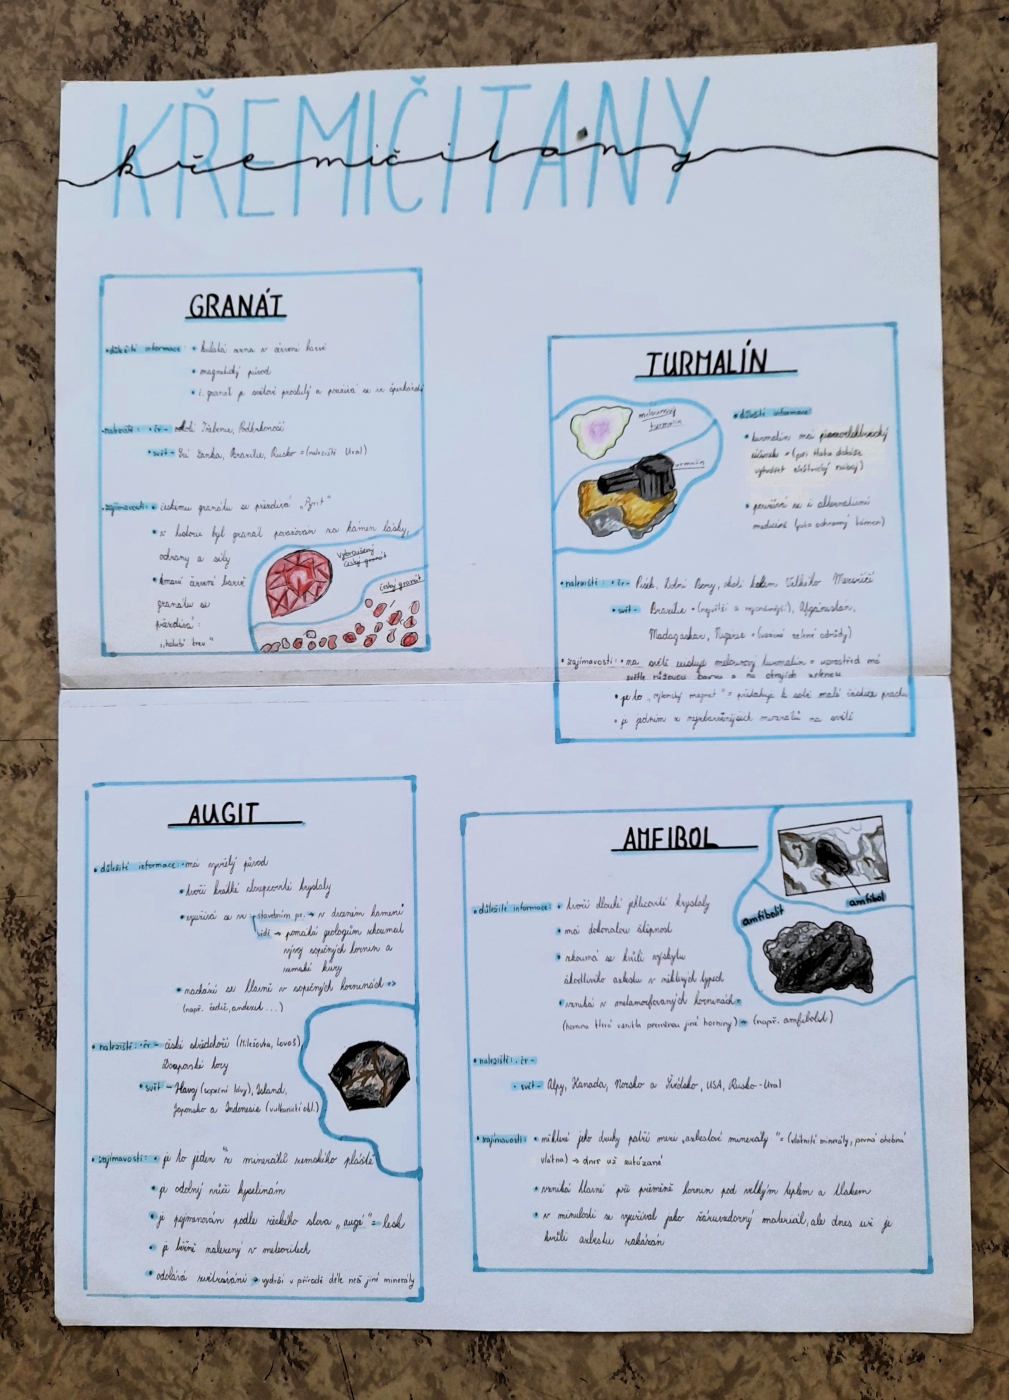 KŘEMIČITANY
křemičitany
GRANÁT
• důležité informace • kulatá zrna v červené barvě
• magnetický původ
• č. granát je světově proslulý a používá se ve šperkařství
• naleziště: • čr - okolí Třebenic, Podkrkonoší
• svět - Srí Lanka, Brazílie, Rusko = (naleziště Ural)
• zajímavosti: • českému granátu se přezdívá
• v historii byl granát považován za kámen lásky,
ochrany a síly
• tmavě červené barvě
granátu se
přezdívá:
„holubí krev"
vybroušený
český granát
český granát
TURMALÍN
melounový
turmalín
turmalín
důležité informace
• turmalín má piezoelektrický
účinek = (při tlaku dokáže
vytvářet elektrický náboj)
• používá se i alternativní
medicíně (jako ochranný kámen)
• naleziště: • čr - Písek, Dolní Bory, okolí kolem Velkého Meziříčí
• svět - Brazílie = (největší a nejznámější), Afganistan,
Madagaskar, Nigérie = (vzácné zelené odrůdy)
• zajímavosti: • na světě existuje melounový turmalín = uprostřed má
světle růžovou barvu a na okrajích zelenou
• je to „cejlonský magnet" = přitahuje k sobě malé částice prachu
• je jedním z nejbarevnějších minerálů na světě
AUGIT
• důležité informace: • má vyvřelý původ
• tvoří krátké sloupcovité krystaly
• využívá se ve - stavebním pr. → v drceném kamení
vědě → pomáhá geologům zkoumat
vývoj sopečných hornin a
zemské kůry
• nachází se hlavně v sopečných horninách =>
(např. čedič, andezit...)
• naleziště: • čr - české středohoří (Milešovka, Lovoš),
Doupovské hory
• svět - Havaj (sopečné lávy), Island,
Japonsko a Indonesie (vulkanické obl.)
• zajímavosti: • je to jeden z minerálů zemského pláště
• je odolný vůči kyselinám
• je pojmenován podle řeckého slova „augé" = lesk
• je běžně nalezený v meteoritech
• odolává zvětrávání → vydrží v přírodě déle než jiné minerály
AMFIBOL
amfibol
amfibolit
• důležité informace • tvoří dlouhé jehlicovité krystaly
• má dokonalou štěpnost
• zkoumá se kvůli výskytu
škodlivého azbestu v některých typech
• vzniká v metamorfovaných horninách =
(hornina která vznikla přeměnou jiné horniny) → (např. amfibolit)
• naleziště: • čr -
• svět - Alpy, Kanada, Norsko a Švédsko, USA, Rusko - Ural
• zajímavosti: • některé jeho druhy patří mezi „azbestové minerály" = (vláknité minerály, pevná ohebná
vlákna) → dnes už zakázané
• vzniká hlavně při přeměně hornin pod velkým teplem a tlakem
• v minulosti se využíval jako žáruvzdorný materiál, ale dnes už je
kvůli azbestu zakázán